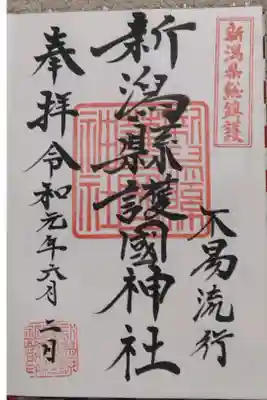 新潟県総鎮護
不易流行
新潟縣護國神社
奉拝 令和元年六月二日